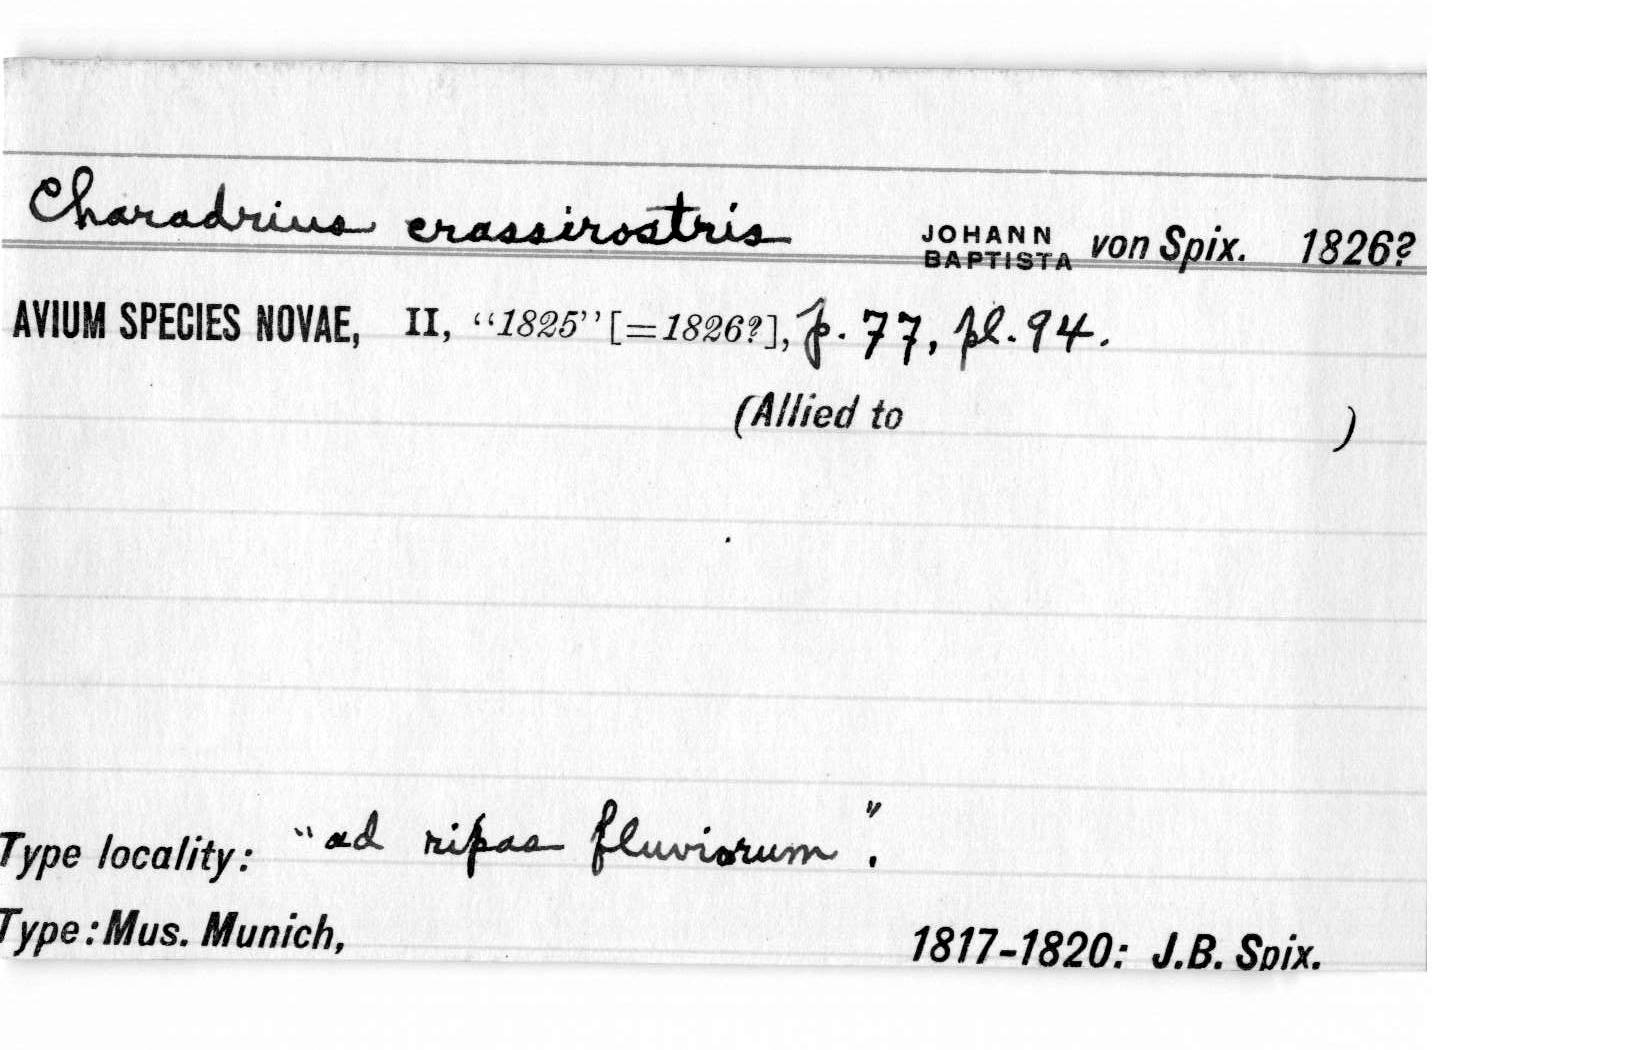 Charadrius crassirostris JOHANN BAPTISTA von Spix. 1826?
AVIUM SPECIES NOVAE, II, "1825" [=1826?], p. 77, pl. 94.
(Allied to )
Type locality: "ad ripas fluviorum".
Type: Mus. Munich, 1817-1820: J.B. Spix.